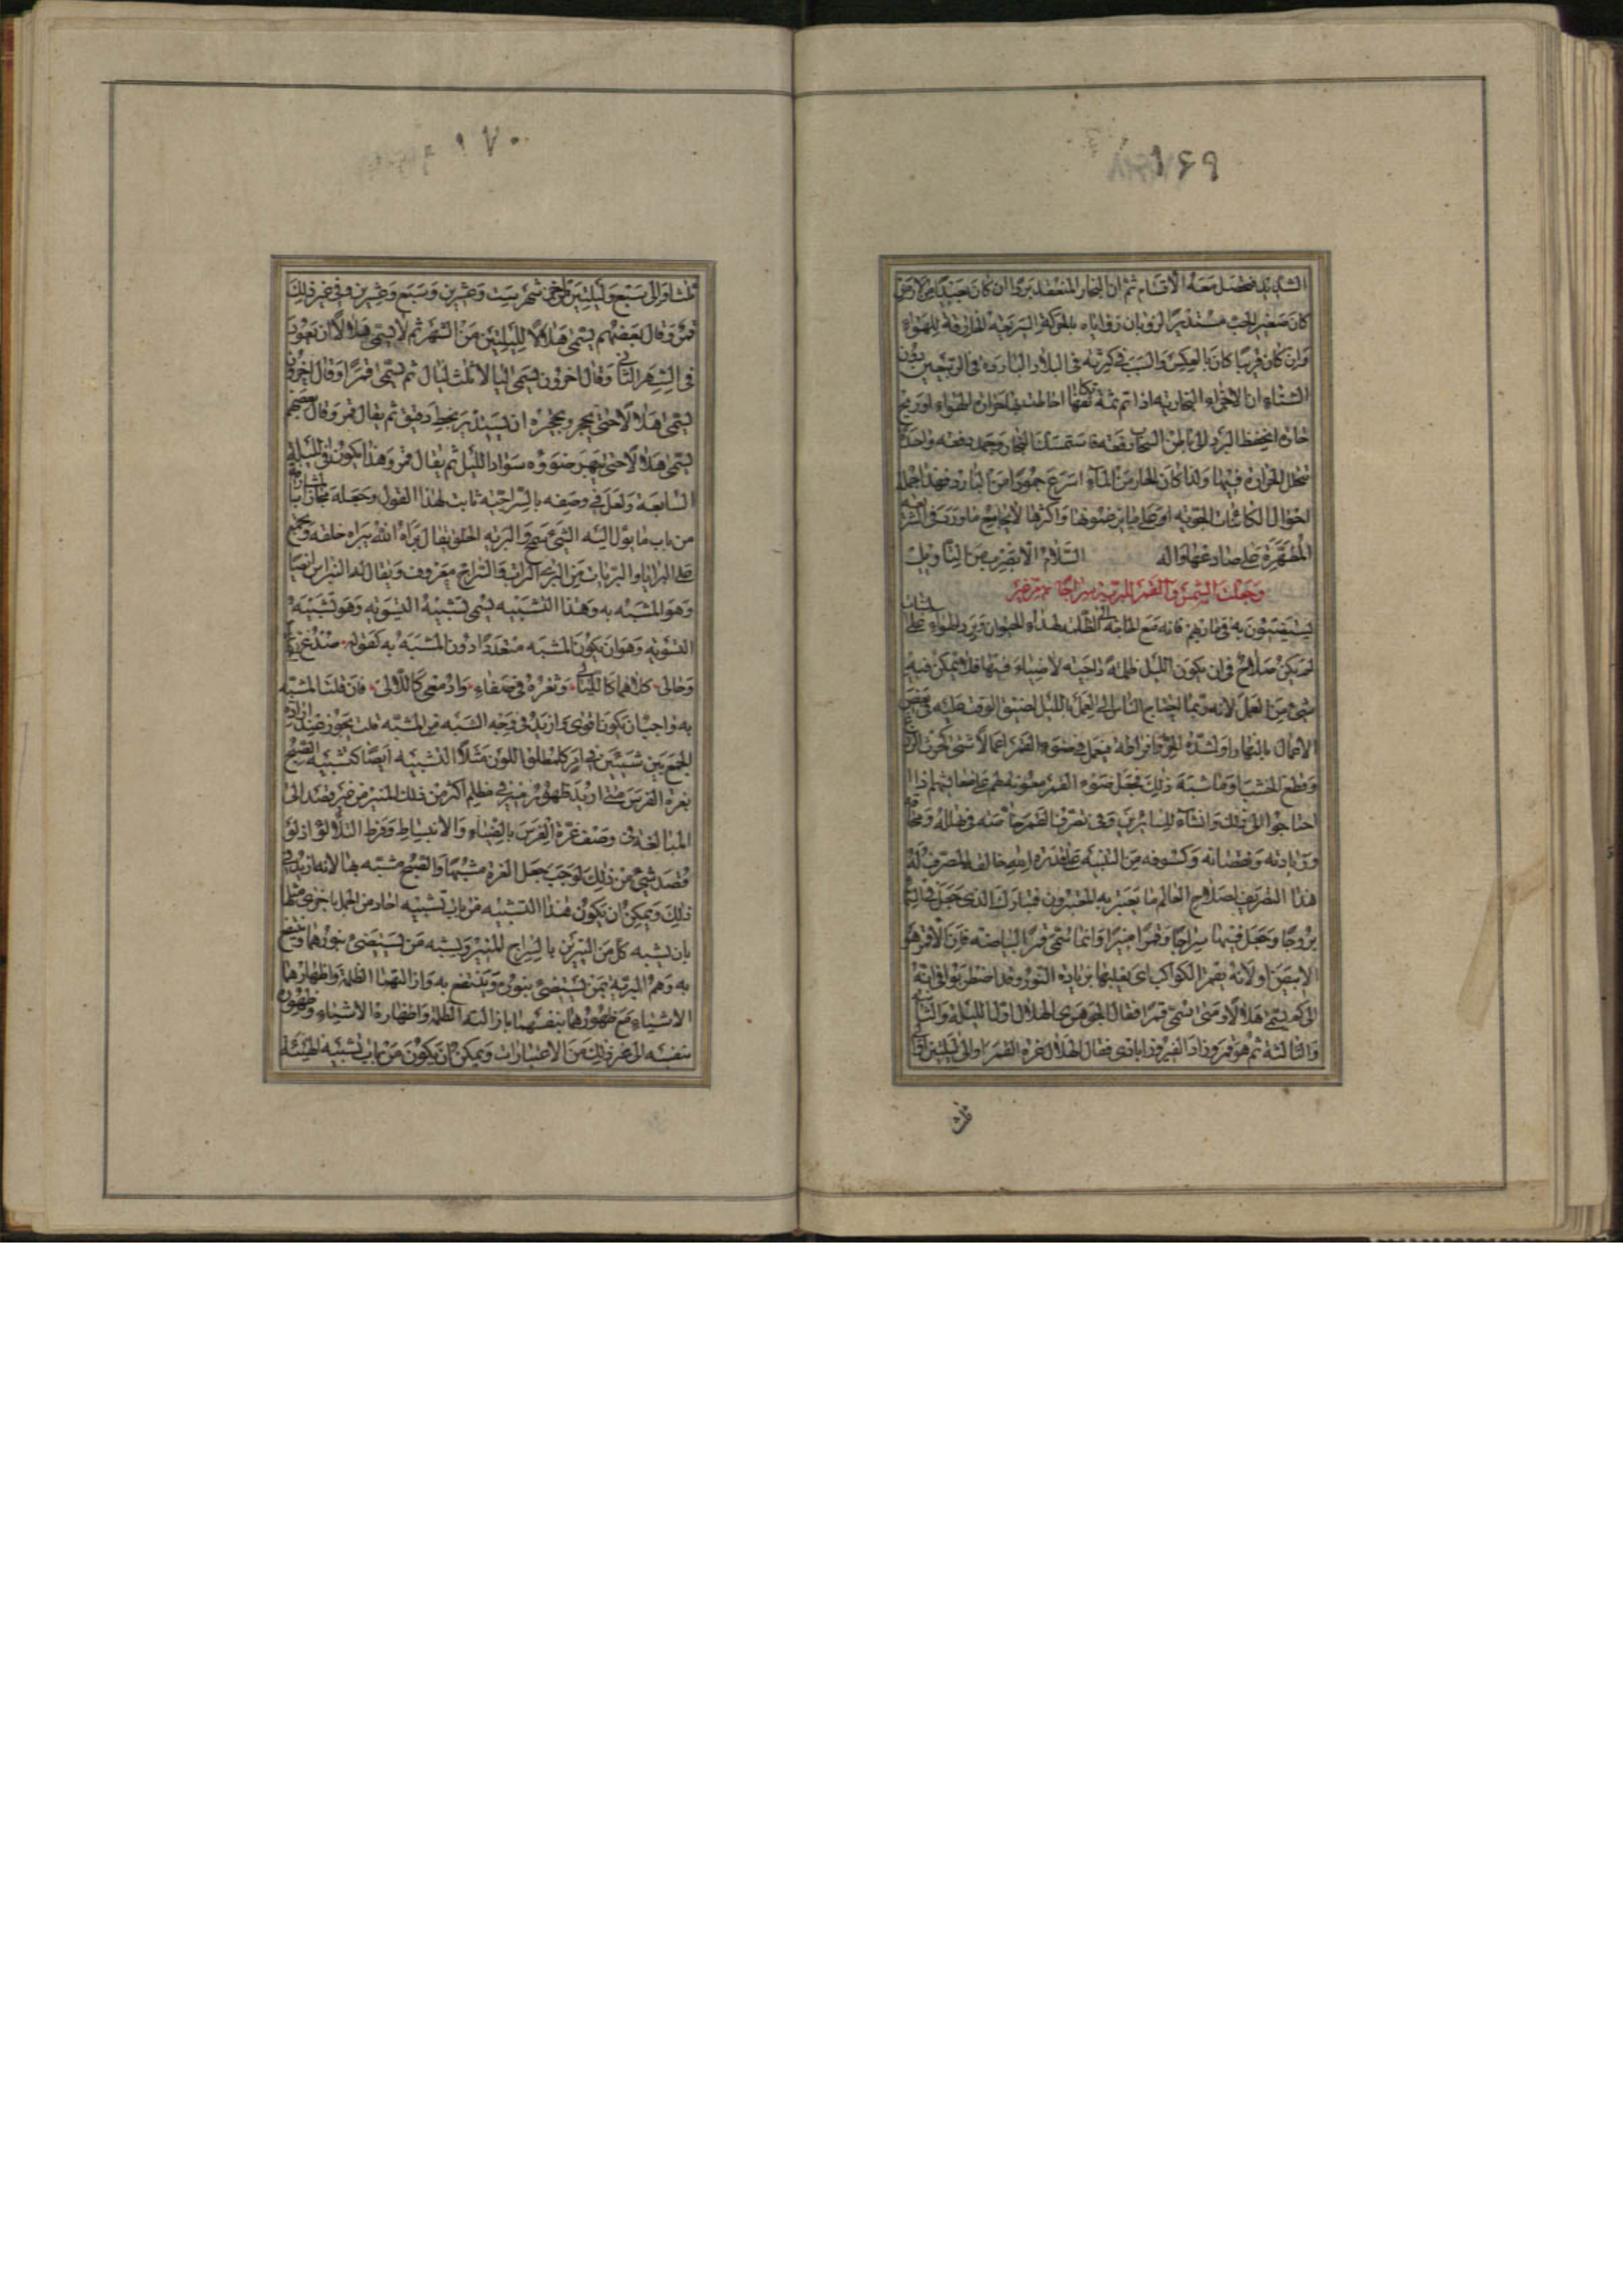 ۱۶۹
الشديد فحصل معه الاقسام ثم ان البخار المنعقد بردا ان كان بعيدا من الارض
كان صغير الحب مستديرا لذوبان زواياه بالحركة السريعة الخارقة للهواء
وان كان قريبا كان بالعكس والسبب في كثرته في البلاد الباردة في الربيعين دون
الشتاء ان الاجزاء البخارية اذا تم تكاثفها احاطت بها حرارة الهواء او ريح
حارة انحفظ البرد الى باطن السحاب دفعة فاستمسك البخار وجمد دفعة واحدة
تخلل الحرارة فيها ولذا كان الحار من الماء اسرع جمودا من البارد فهذا جملة
احوال الكائنات الجوية
المطهرة على صادعها واله السلام
وجعلت الشمس والقمر للبرية سراجا
يستضيئون به في مآربهم فانه مع الحاجة الى الظلمة لهداء الحيوان وبرد الهواء على
لم يكن صلاح في ان يكون الليل ظلمة داجية لا ضياء فيها فلا يمكن فيه
شيء من العمل لانه ربما احتاج الناس الى العمل بالليل لضيق الوقت عليه في بعض
الاعمال بالنهار او لشدة الحر وافراطه فيعمل في ضوء القمر اعمالا شتى كحرث الزرع
وقطع الخشب وما اشبه ذلك فجعل ضوء القمر معونة لهم على معايشهم اذا
احتاجوا الى ذلك وانسا للسائرين وفي تصرف القمر خاصة في تهلله ومحاقه
وزيادته ونقصانه وكسوفه من التنبيه على قدرة الله خالقه المصرف له
هذا التصريف لصلاح العالم ما يعتبر به المعتبرون فتبارك الذي جعل في السماء
بروجا وجعل فيها سراجا وقمرا منيرا وانما سمي قمرا لبياضه فان الاقمر هو
الابيض او لانه يقمر الكواكب اي يغلبها بزيادة النور وقد اضطربوا في انه
الى كم يسمى هلالا ومتى يسمى قمرا فقال الجوهري الهلال اول الليلة والثانية
والثالثة ثم هو قمر وزاد الفيروزابادي فقال الهلال غرة القمر او الى ليلتين او الى
ثلث
۱۷۰
ثلث او الى سبع وليلتين من اخر شهر ست وعشرين وسبع وعشرين وفي غير ذلك
قمر وقال بعضهم يسمى هلالا لليلتين من الشهر ثم لا يسمى هلالا الى ان يعود
في الشهر الثاني وقال اخرون يسمى هلالا ثلث ليال ثم يسمى قمرا وقال اخرون
يسمى هلالا حتى يحجر وتحجره ان يستدير بخط دقيق ثم يقال قمر وقال بعضهم
يسمى هلالا حتى يبهر ضوؤه سواد الليل ثم يقال قمر وهذا يكون في الليلة
السابعة ولعل في وصفه بالسراجية ثابت لهذا القول وجعله مجازا
من باب ما يؤل اليه الشيء والبرية الخلق يقال براه الله يبراه خلقه ويجمع
على البرايا والبريات والسراج معروف ويقال له النبراس ايضا
وهو المشبه به وهذا التشبيه يسمى تشبيه التسوية وهو تشبيه
التسوية وهو ان يكون المشبه متعددا دون المشبه به كقوله صدغ
وحالي كلاهما كالليالي وثغره في صفاء وادمعي كاللآلي فان قلت المشبه
به واجب ان يكون اقوى وازيد في وجه الشبه من المشبه قلت يجوز عند ارادة
الجمع بين شيئين في امر كمطلق اللون مثلا التشبيه ايضا كتشبيه الصبح
بغرة الفرس متى اريد ظهور منير في مظلم اكثر من ذلك المنير من غير قصد الى
المبالغة في وصف غرة الفرس بالضياء والانبساط وفرط التلألؤ اذ لو
قصد شيء من ذلك لوجب جعل الغرة مشبها والصبح مشبه بها لانه ازيد في
ذلك ويمكن ان يكون هذا التشبيه من باب تشبيه احاد من الجمل باخرى مثلها
بان يشبه كل من النيرين بالسراج المنير ويشبه من يستضيء بنورهما وينتفع
به وهم البرية بمن يستضيء بنوره وينتفع به وازالتهما الظلمة واظهارهما
الاشياء مع ظهورهما بنفسهما بازالته الظلمة واظهاره الاشياء وظهوره
بنفسه الى غير ذلك من الاعتبارات ويمكن ان يكون من باب تشبيه الهيئة